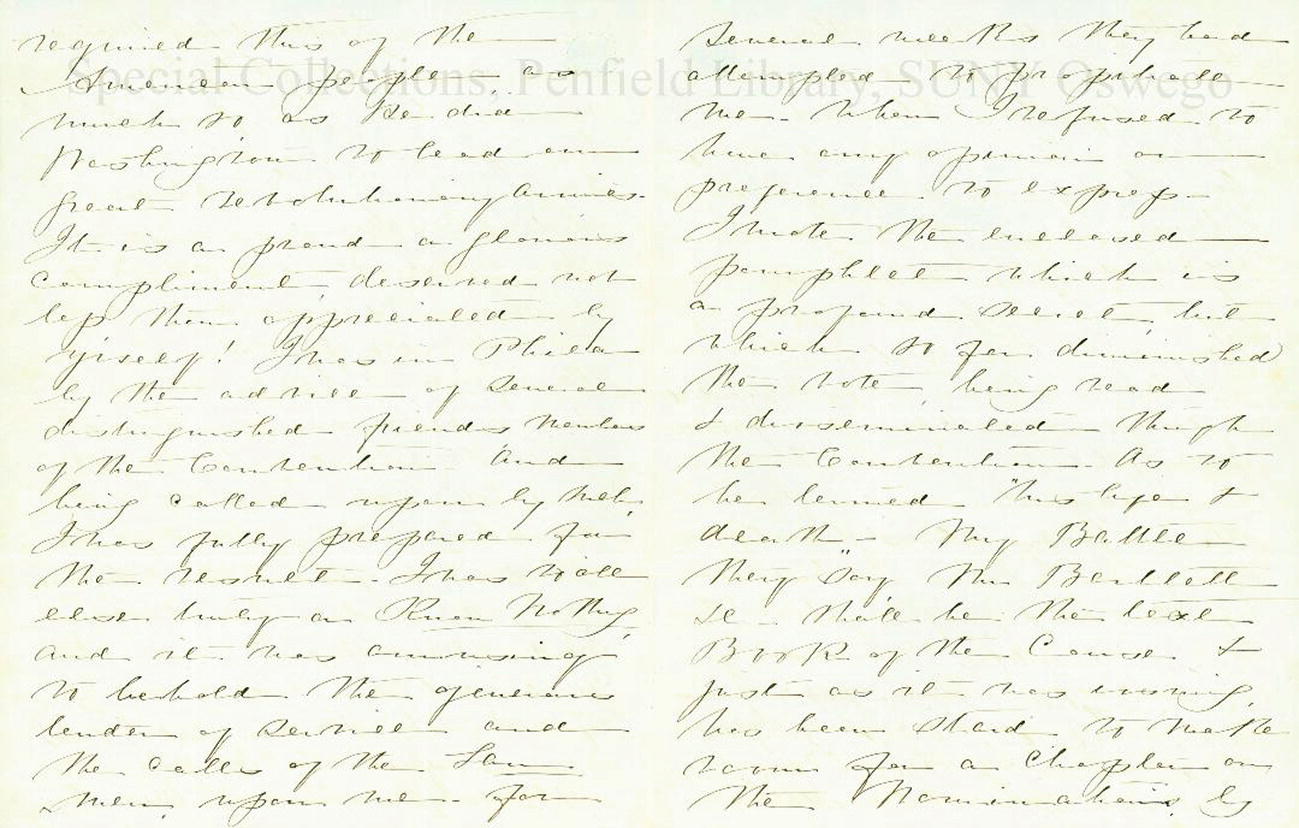 required this of the
American people, as
much so, as He did
Washington to lead our
great revolutionary armies.
It is a proud a glorious
compliment, deserved not
less than appreciated by
y'rself! I was in Phila
by the advice of several
distinguished friends Members
of the Convention And
being called upon by Mch,
I was fully prepared for
the result. I was to all
else truly a Know Nothing,
and it was amusing
to behold the generous
tender of service and
the calls of the Law
Men, upon me. For
several weeks they had
attempted to propitiate
me. When I refused to
have any opinion or
preference to express.
I wrote the enclosed
pamphlet which is
a profound secret, but
which so far diminished
the vote, being read
& disseminated through
the Convention. As to
be termed "his life &
death - My Battle
they say, Mr Bartlett
se shall be the text
Book of the Cause &
just as it was issuing,
has been staid to make
room for a Chapter on
the Nominations, by
Special Collections, Penfield Library, SUNY Oswego